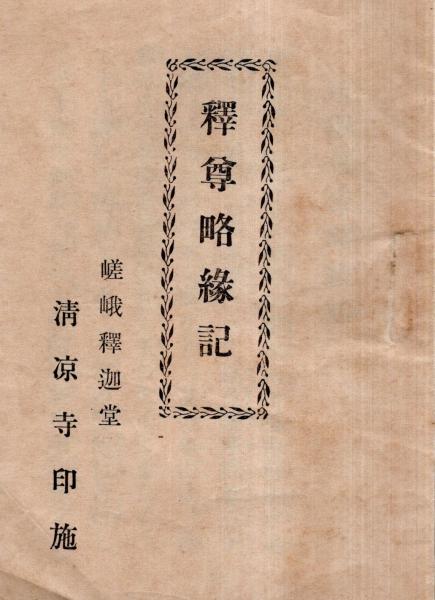 釋尊略緣記
嵯峨釋迦堂
淸凉寺印施